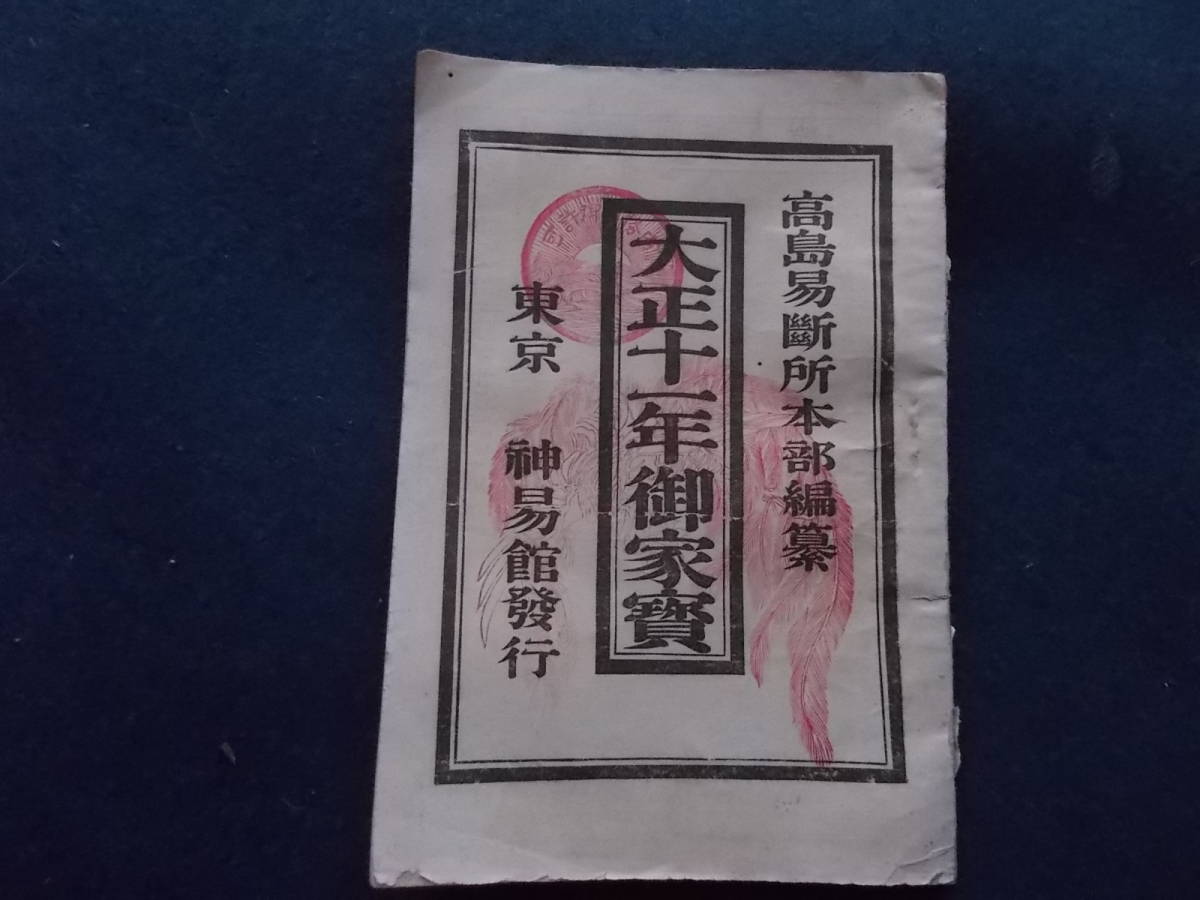 高島易斷所本部編纂
大正十一年御家寳
東京 神易館發行